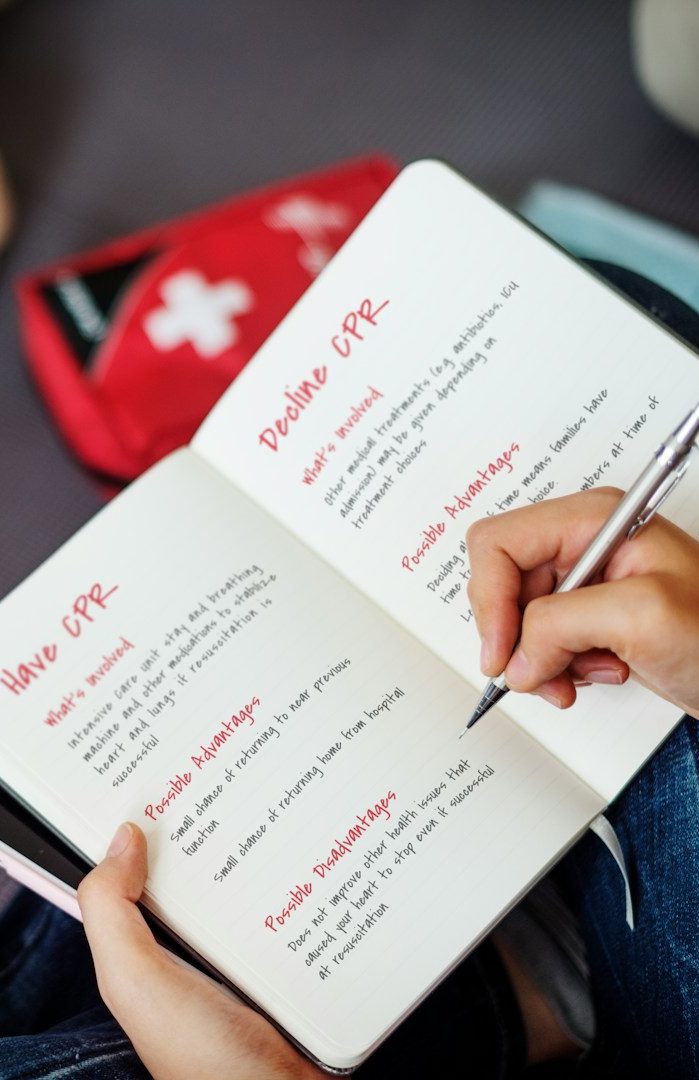 Have CPR
What's Involved
Intensive care unit stay and breathing
machine and other medications to stablize
heart and lungs if resuscitation is
successful
Possible Advantages
Small chance of returning to near previous
function
Small chance of returning home from hospital
Possible Disadvantages
Does not improve other health issues that
caused your heart to stop even if successful
at resuscitation
Decline CPR
What's Involved
Other medical treatments (e.g. antibiotics, ICU
admission) may be given depending on
treatment choices
Possible Advantages
Deciding time means families have
time choice
at time of